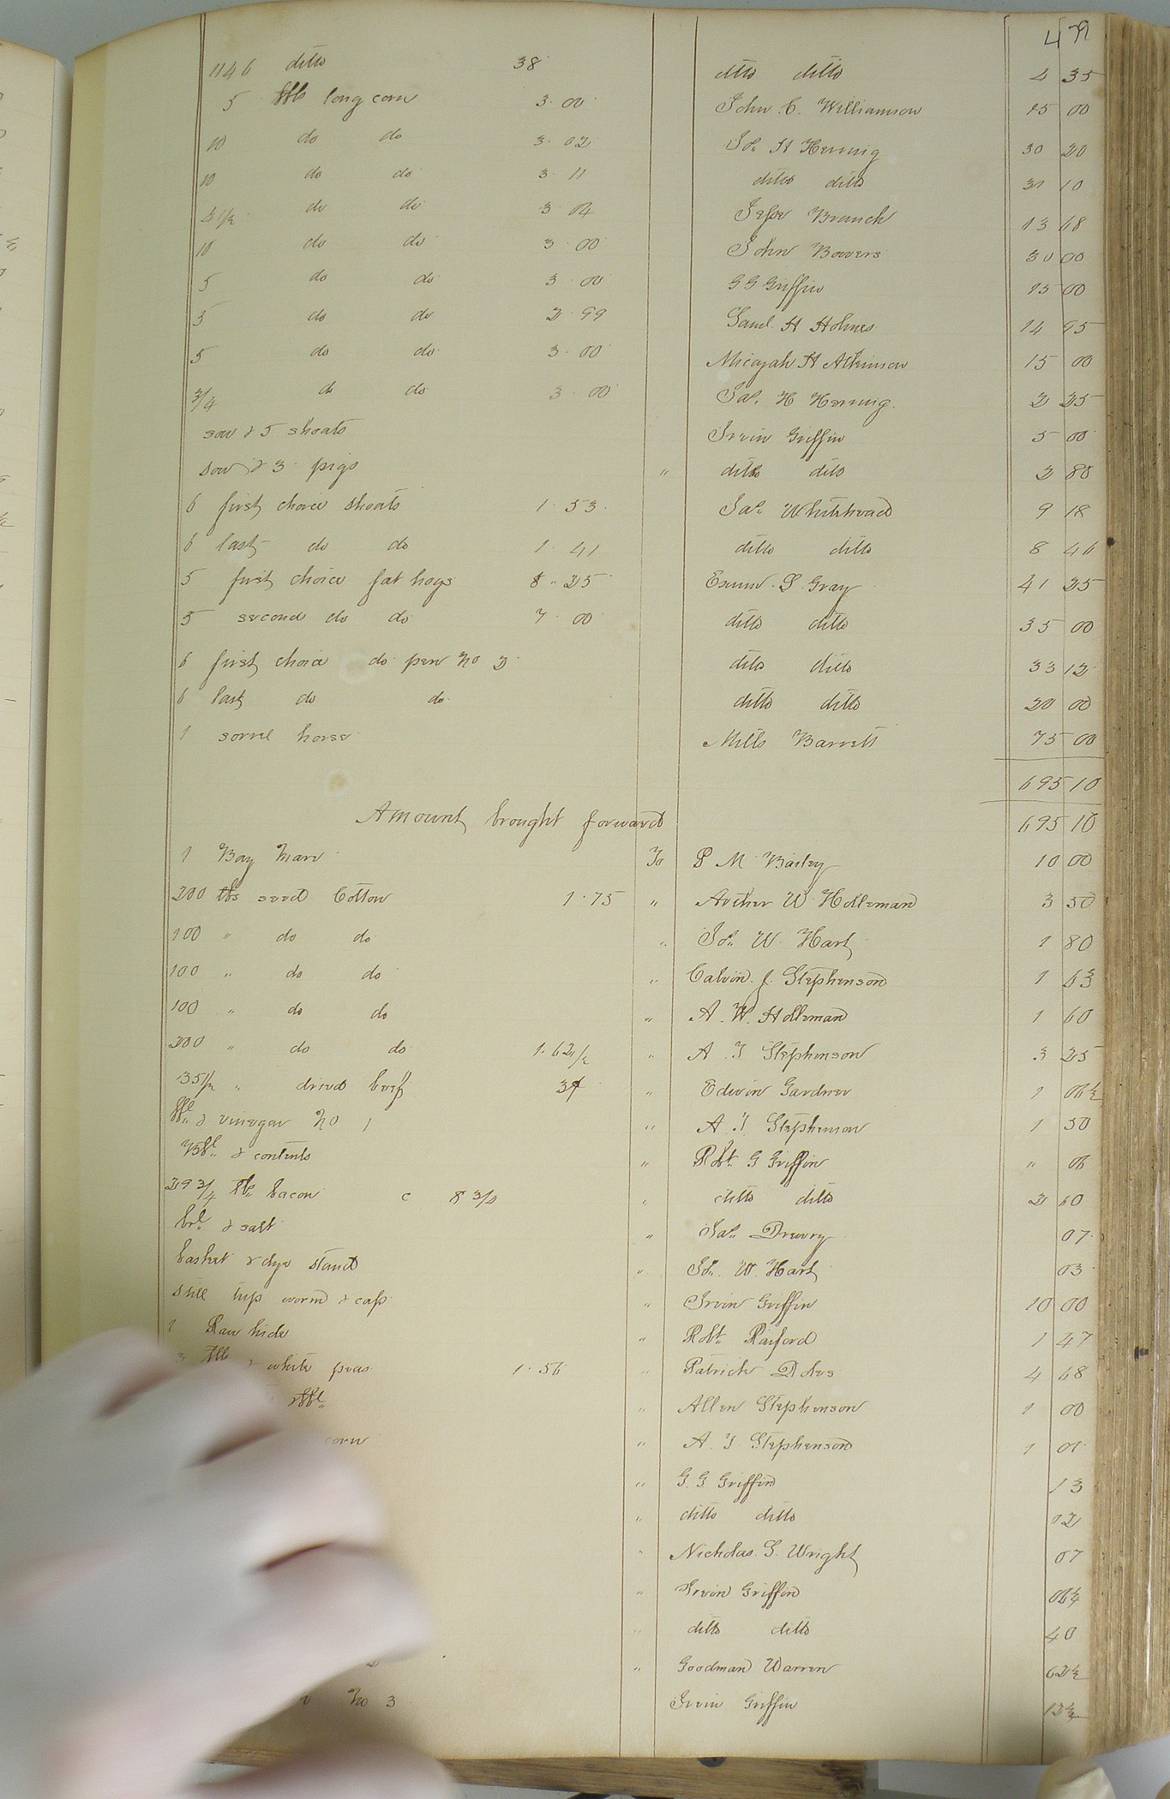 1146 ditto 38 ditto ditto 4 35
5 bbls long corn 3.00 John C. Williamson 15 00
10 do do 3.02 Jos. H Herring 30 20
10 do do 3.11 ditto ditto 31 10
4 1/2 do do 3.04 Branch 13 68
10 do do 3.00 John Bowers 30 00
5 do do 3.00 G G Griffin 15 00
5 do do 2.99 Saml. H Holmes 14 95
5 do do 3.00 Micajah H Atkinson 15 00
3/4 do do 3.00 Jas. H Herring 2 25
sow & 5 shoats Irvin Griffin 5 00
sow & 3 pigs " ditto ditto 2 80
6 first choice shoats 1.53 Jas. Whitehead 9 18
6 last do do 1.41 ditto ditto 8 46
5 first choice fat hogs 8.25 S. Gray 41 25
5 second do do 7.00 ditto ditto 35 00
6 first choice do pen No 2 ditto ditto 33 12
6 last do do ditto ditto 20 00
1 sorrel horse Mills Barrett 75 00
695 10
Amount brought forward 695 10
1 Bay Mare To P M Bailey 10 00
200 lbs seed Cotton 1.75 " Archer W Holleman 3 50
100 " do do " Jos. W. Hart 1 80
100 " do do " Calvin J. Stephenson 1 63
100 " do do " A. W. Holleman 1 60
200 " do do 1.62 1/2 " A. T Stephenson 3 25
35 1/2 " dried beef 3 " Edwin Gardner 1 06 1/2
bbl. & vinegar No 1 " A. T. Stephenson 1 50
bbl. & contents " Robt. G Griffin " 06
29 3/4 lbs bacon c 8 3/4 " ditto ditto 2 60
brl. & salt " Jas. Drewry 07
basket & dye stand " Jos. W. Hart 03
still tub worm & cap " Irvin Griffin 10 00
1 Raw hide " Robt. Raiford 1 47
3 & white peas 1.56 " Patrick Doles 4 68
" Allen Stephenson 1 00
corn " A. T Stephenson 1 01
" G. G. Griffin 13
" ditto ditto 02
" Nicholas S. Wright 07
" Irvin Griffin 06 1/4
" ditto ditto 40
" Goodman Warren 62 1/2
No 3 Irvin Griffin 12 1/2